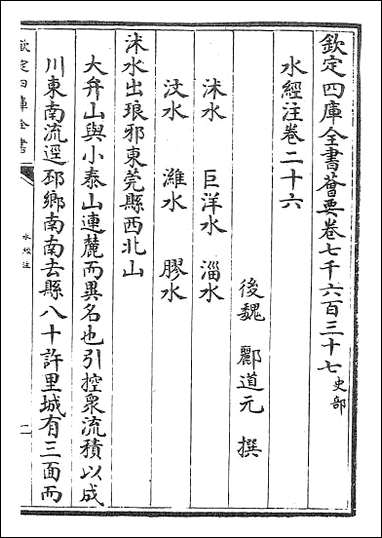 欽定四庫全書薈要卷七千六百三十七史部
水經注卷二十六
後魏 酈道元 撰
沭水 巨洋水 淄水
汶水 濰水 膠水
沭水出琅邪東莞縣西北山
大弁山與小泰山連麓而異名也引控衆流積以成
川東南流逕邳鄉南南去縣八十許里城有三面而
欽定四庫全書
水經注